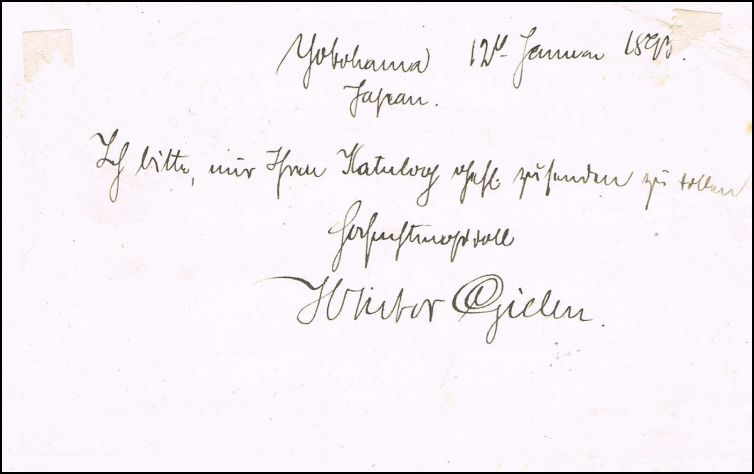 Yokohama 12t Januar 1893.
Japan.
Ich bitte, mir Ihren Katalog gefl. zusenden zu wollen
Hochachtungsvoll
Gielen.